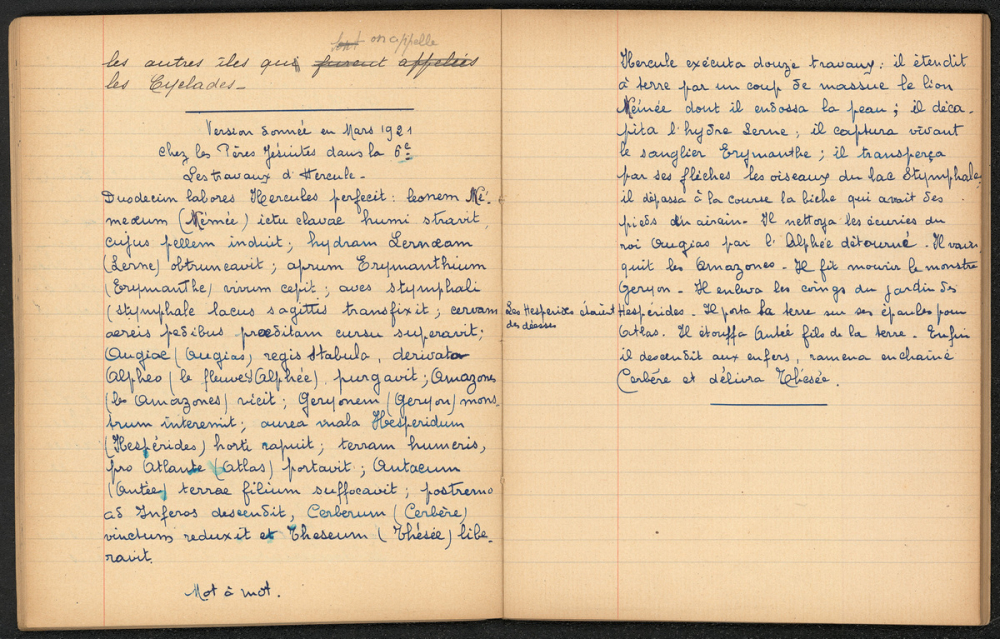 sont on appelle
les autres îles qui furent appelées
les Cyclades_
Version donnée en Mars 1921
chez les Pères Jésuites dans la 6e
Les travaux d'Hercule_
Duodecim labores Hercules perfecit : leonem Né-
meæum (Némée) ictu clavae humi stravit
cujus pellem induit ; hydram Lernæam
(Lerne) obtruncavit ; aprum Erymanthium
(Erymanthe) vivum cepit ; aves stymphali
(stymphale lacus sagittis transfixit ; cervam
aereis pedibus præditam cursu superavit ;
Augiæ (Augias) regis stabula, derivato
Alpheo (le fleuve Alphée) purgavit ; Amazones
(les Amazones) vicit ; Geryonem (Geryon) mons-
trum interemit ; aurea mala Hesperidum
(Hespérides) horti rapuit ; terram humeris,
pro Atlante (Atlas) portavit ; Antaeum
(Antée) terrae filium suffocavit ; postremo
ad Inferos descendit, Cerberum (Cerbère)
vinctum reduxit et Theseum (Thésée) libe-
ravit.
Mot à mot.
Hercule exécuta douze travaux : il étendit
à terre par un coup de massue le lion
Némée dont il endossa la peau ; il déca-
pita l'hydre Lerne ; il captura vivant
le sanglier Erymanthe ; il transperça
par ses flèches les oiseaux du lac Stymphale,
il dépassa à la course la biche qui avait des
pieds du airain. Il nettoya les écuries du
roi Augias par l'Alphée détourné. Il vain-
quit les Amazones. Il fit mourir le monstre
Geryon. Il enleva les coings du jardin des
Les Hesperides étaient
des déesses
Hespérides. Il porta la terre sur ses épaules pour
Atlas. Il étouffa Antée fils de la terre. Enfin
il descendit aux enfers, ramena enchaîné
Cerbère et délivra Thésée.